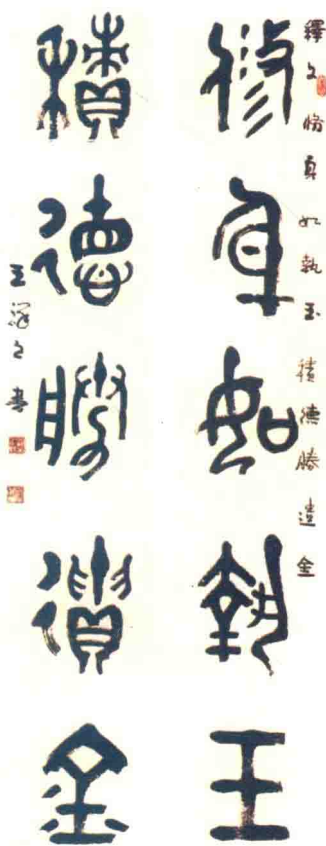 釋文 脩身如執玉 積德勝遺金
脩身如執玉
積德勝遺金